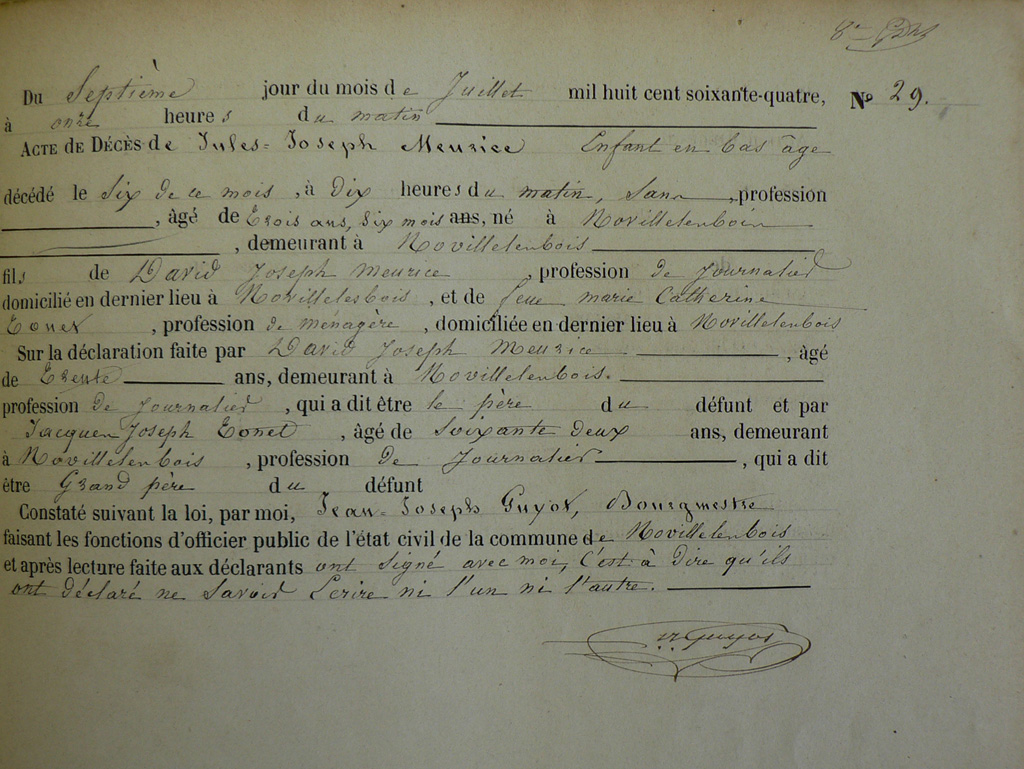 Du Septième jour du mois de Juillet mil huit cent soixante-quatre, No 29.
à onze heures du matin
Acte de Décès de Jules-Joseph Meurice Enfant en bas âge
décédé le Six de ce mois, à Dix heures du matin, Sans profession
, âgé de Trois ans, Six mois ans, né à Novillelenbois
, demeurant à Novillelenbois
fils de David Joseph Meurice, profession de Journalier
domicilié en dernier lieu à Novillelesbois, et de feue marie Catherine
Tonet, profession de ménagère, domiciliée en dernier lieu à Novillelenbois
Sur la déclaration faite par David Joseph Meurice, âgé
de Trente ans, demeurant à Novillelenbois.
profession de Journalier, qui a dit être le père du défunt et par
Jacques Joseph Tonet, âgé de Soixante deux ans, demeurant
à Novillelenbois, profession de Journalier, qui a dit
être Grand père du défunt
Constaté suivant la loi, par moi, Jean-Joseph Guyot, Bourgmestre
faisant les fonctions d'officier public de l'état civil de la commune de Novillelenbois
et après lecture faite aux déclarants ont signé avec moi, C'est à Dire qu'ils
ont déclaré ne Savoir Ecrire ni l'un ni l'autre.
Guyot